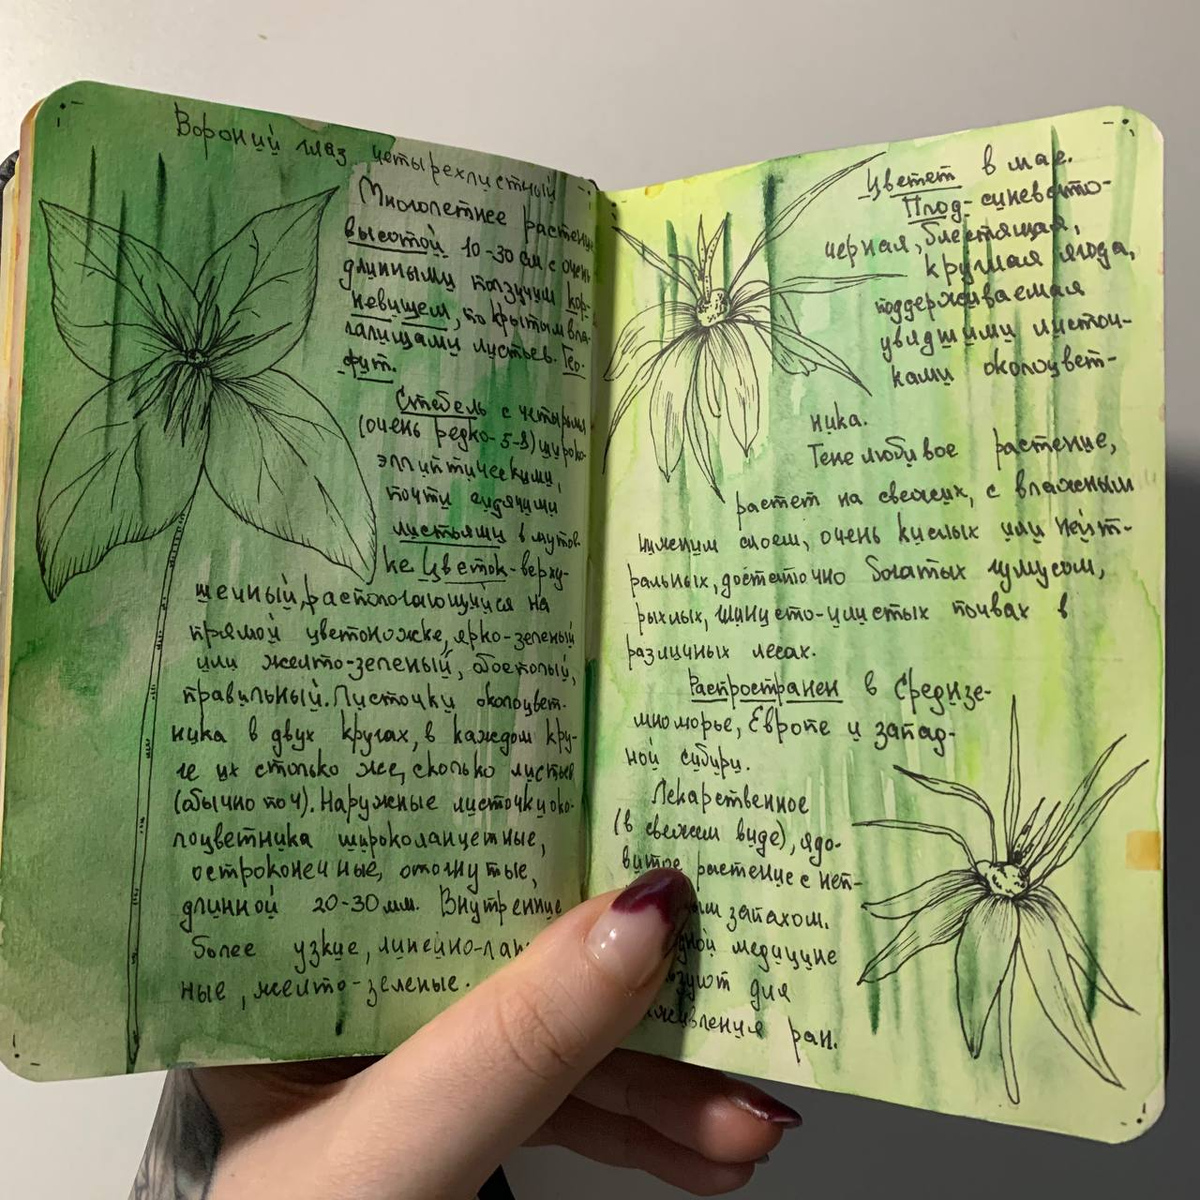 Вороний глаз четырехлистный
Многолетнее растение
высотой 10-30 см с очень
длинными ползучим кор-
невищем, покрытым вла-
галищами листьев. Гео-
фит.
Стебель с четырьмя
(очень редко-5-8) широко-
эллиптическими,
почти сидячими
листьями в мутов-
ке. Цветок-верху-
шечный, распологающийся на
прямой цветоножке, ярко-зеленый
или желто-зеленый, обоеполый,
правильный. Листочки околоцвет-
ника в двух кругах, в каждом кру-
ге их столько же, сколько листьев
(обычно по 4). Наружные листочки око-
лоцветника широколанцетные,
остроконечные, отогнутые,
длинной 20-30 мм. Внутренние
более узкие, линейно-лан
ные, желто-зеленые.
Цветет в мае.
Плод-синевато-
черная, блестящая,
круглая ягода,
поддерживаемая
увядшими листоч-
ками околоцвет-
ника.
Тенелюбивое растение,
растет на свежих, с влажным
нижним слоем, очень кислых или нейт-
ральных, достаточно богатых гумусом,
рыхлых, глинисто-илистых почвах в
различных лесах.
Распространен в Средизе-
мноморье, Европе и запад-
ной сибири.
Лекарственное
(в свежем виде), ядо-
витое растение с неп-
ым запахом.
дной медицине
зуют для
живления ран.